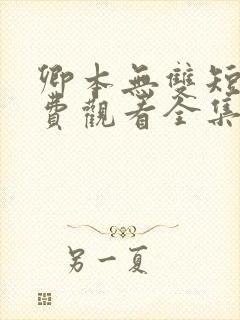 卿本無雙短
費觀看全集
另一夏